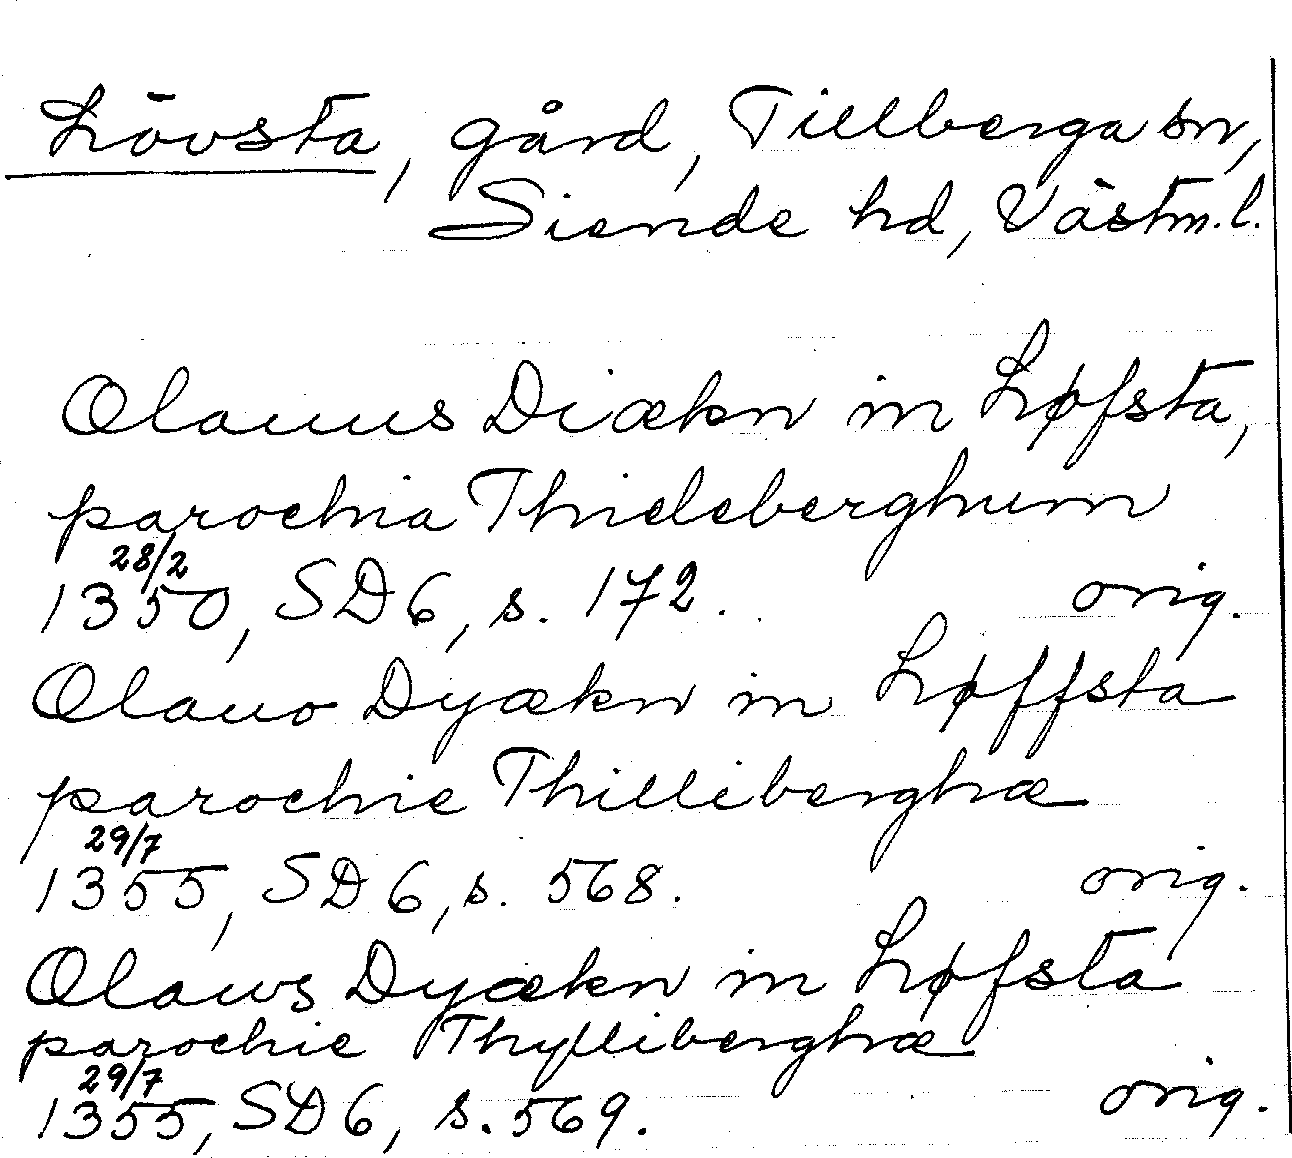 Lövsta, gård, Tillberga sn,
Siende hd, Västm. l.
Olauus Diækn in Løfsta,
parochia Thieleberghum
28/2
1350, SD 6, s. 172. orig.
Olauo Dyækn in Løffsta
parochie Thilliberghæ
29/7
1355, SD 6, s. 568. orig.
Olaws Dyækn in Løfsta
parochie Thylliberghæ
29/7
1355, SD 6, s. 569. orig.